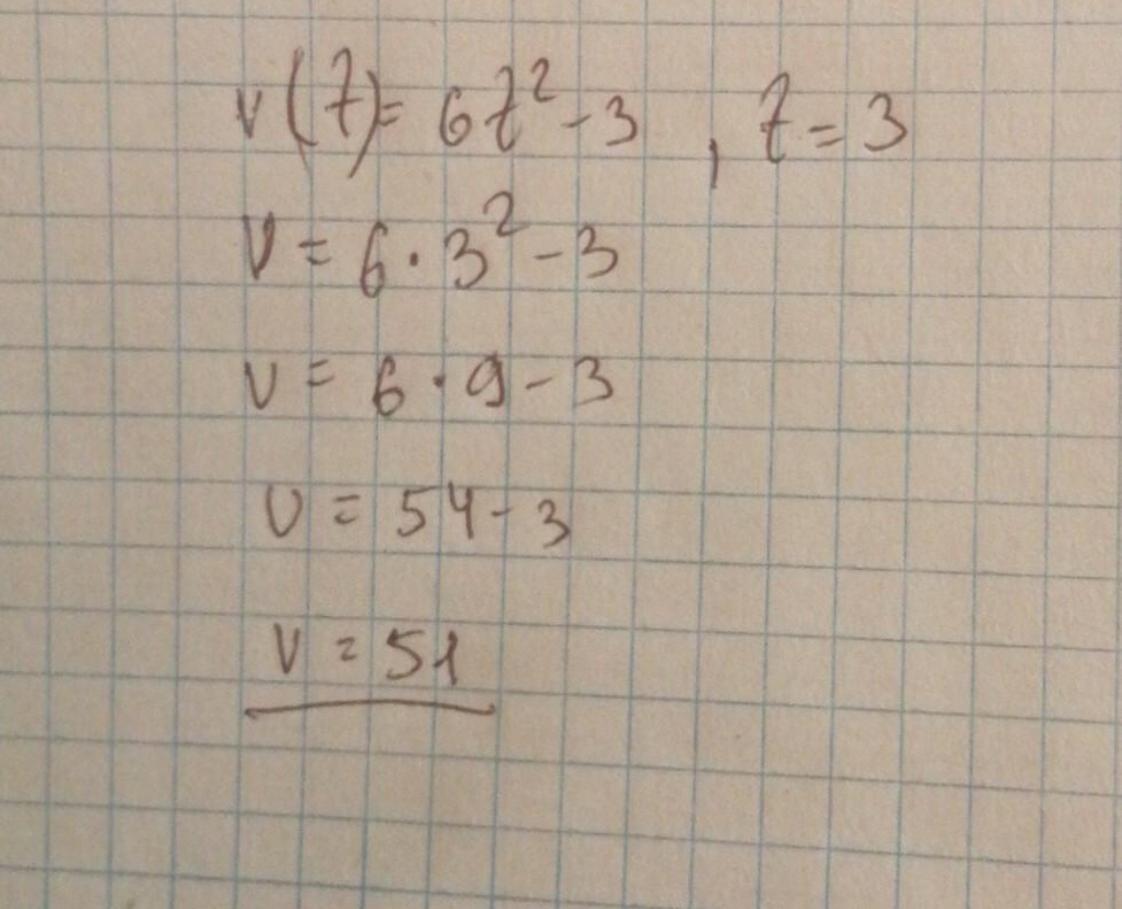 v(t)= 6t²-3 , t=3
v = 6·3²-3
v = 6·9-3
v = 54-3
v = 51